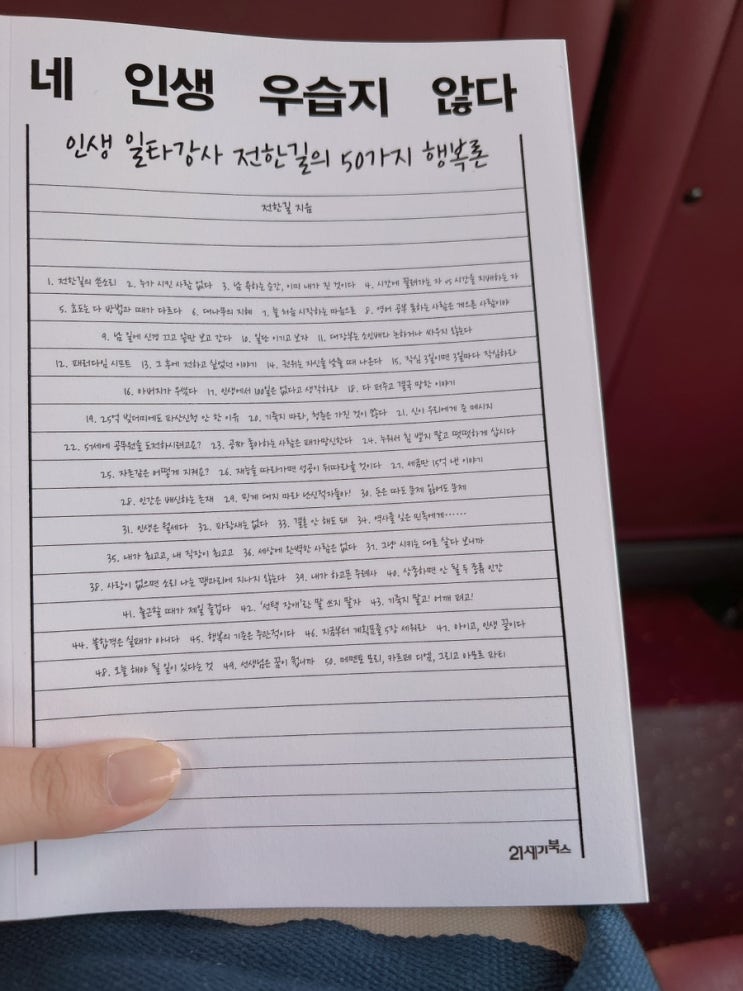 네 인생 우습지 않다
인생 일타강사 전한길의 50가지 행복론
전한길 지음
1. 전한길의 쓴소리 2. 누가 시킨 사람 없다 3. 남 욕하는 순간, 이미 내가 진 것이다 4. 시간에 끌려가는 자 vs 시간을 지배하는 자
5. 효도는 다 방법과 때가 다르다 6. 대나무의 지혜 7. 늘 처음 시작하는 마음으로 8. 영어 공부 못하는 사람은 게으른 사람이야
9. 남 일에 신경 끄고 앞만 보고 간다 10. 일단 이기고 보자 11. 대장부는 소인배와 논하거나 싸우지 않는다
12. 패러다임 시프트 13. 그 후에 전하고 싶었던 이야기 14. 권위는 자신을 낮출 때 나온다 15. 작심 3일이면 3일마다 작심하라
16. 아버지가 우셨다 17. 인생에서 100일은 없다고 생각하라 18. 다 퍼주고 결국 망한 이야기
19. 25억 빚더미에도 파산신청 안 한 이유 20. 기죽지 마라, 청춘은 가진 것이 많다 21. 신이 우리에게 준 메시지
22. 57세에 공무원을 도전하시려고요? 23. 공짜 좋아하는 사람은 패가망신한다 24. 누워서 침 뱉지 말고 떳떳하게 삽시다
25. 자존감은 어떻게 지켜요? 26. 재능을 따라가면 성공이 뒤따라올 것이다 27. 세금만 15억 낸 이야기
28. 인간은 배신하는 존재 29. 핑계 대지 마라 난신적자들아! 30. 돈은 따도 문제 잃어도 문제
31. 인생은 월세다 32. 파랑새는 없다 33. 결혼 안 해도 돼 34. 역사를 잊은 민족에게……
35. 내가 최고고, 내 직장이 최고고 36. 세상에 완벽한 사람은 없다 37. 그냥 시키는 대로 살다 보니까
38. 사랑이 없으면 소리 나는 꽹과리에 지나지 않는다 39. 내가 하고픈 주례사 40. 상종하면 안 될 두 종류 인간
41. 출근할 때가 제일 즐겁다 42. '선택 장애'란 말 쓰지 말자 43. 기죽지 말고! 어깨 펴고!
44. 불합격은 실패가 아니다 45. 행복의 기준은 주관적이다 46. 지금부터 계획표를 5장 세워라 47. 아이고, 인생 꿀이다
48. 오늘 해야 될 일이 있다는 것 49. 선생님은 꿈이 뭡니까 50. 메멘토 모리, 카르페 디엠, 그리고 아모르 파티
21세기북스